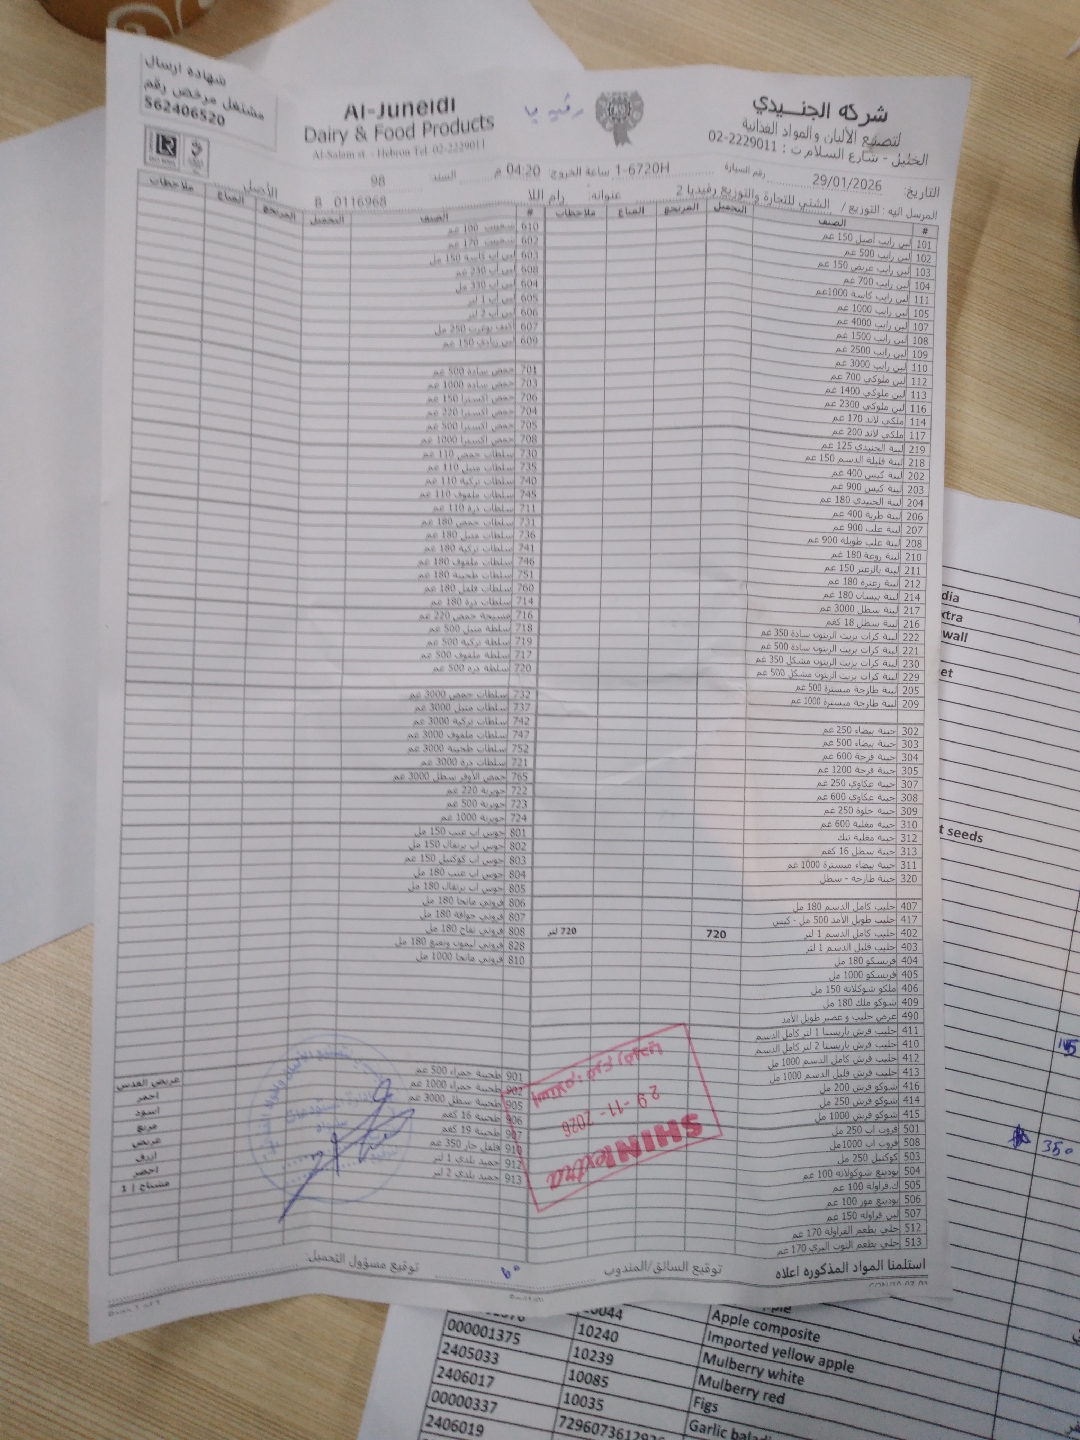 شركة الجنيدي
لتصنيع الألبان والمواد الغذائية
الخليل - شارع السلام ت : 02-2229011
Al-Juneidi
Dairy & Food Products
Al-Salam st - Hebron Tel. 02-2229011
شهادة ارسال
مشتغل مرخص رقم
562406520
التاريخ: 29/01/2026 رقم السيارة 1-6720H ساعة الخروج 04:20 م السند: 98
المرسل اليه : التوزيع / الشني للتجارة والتوزيع رفيديا 2 عنوانه: رام اللا B 0116968 الأصل
# الصنف التحميل المرتجع المباع ملاحظات
101 لبن رايب أصيل 150 غم
102 لبن رايب 500 غم
103 لبن رايب عريض 150 غم
104 لبن رايب 700 غم
111 لبن رايب كاسة 1000غم
105 لبن رايب 1000 غم
107 لبن رايب 4000 غم
108 لبن رايب 1500 غم
109 لبن رايب 2500 غم
110 لبن رايب 3000 غم
112 لبن ملوكي 700 غم
113 لبن ملوكي 1400 غم
116 لبن ملوكي 2300 غم
114 ملكي لاند 170 غم
117 ملكي لاند 200 غم
219 لبنة الجنيدي 125 غم
218 لبنة قليلة الدسم 150 غم
202 لبنة كيس 400 غم
203 لبنة كيس 900 غم
204 لبنة الجنيدي 180 غم
206 لبنة طرية 400 غم
207 لبنة علب 900 غم
208 لبنة علب طويلة 900 غم
210 لبنة روعة 180 غم
211 لبنة بالزعتر 150 غم
212 لبنة زعترة 180 غم
214 لبنة بيسان 180 غم
217 لبنة سطل 3000 غم
216 لبنة سطل 18 كغم
222 لبنة كرات بزيت الزيتون سادة 350 غم
221 لبنة كرات بزيت الزيتون سادة 500 غم
230 لبنة كرات بزيت الزيتون مشكل 350 غم
229 لبنة كرات بزيت الزيتون مشكل 500 غم
205 لبنة طازجة مبسترة 500 غم
209 لبنة طازجة مبسترة 1000 غم
302 جبنة بيضاء 250 غم
303 جبنة بيضاء 500 غم
304 جبنة فرحة 600 غم
305 جبنة فرحة 1200 غم
307 جبنة عكاوي 250 غم
308 جبنة عكاوي 600 غم
309 جبنة حلوة 250 غم
310 جبنة مغلية 600 غم
312 جبنة مغلية تنك
313 جبنة سطل 16 كغم
311 جبنة بيضاء مبسترة 1000 غم
320 جبنة طازجة - سطل
407 حليب كامل الدسم 180 مل
417 حليب طويل الأمد 500 مل - كيس
402 حليب كامل الدسم 1 لتر 720 720 لتر
403 حليب قليل الدسم 1 لتر
404 فريسكو 180 مل
405 فريسكو 1000 مل
406 ملكو شوكلاته 150 مل
409 شوكو ملك 180 مل
490 عرض حليب و عصير طويل الأمد
411 حليب فرش باريستا 1 لتر كامل الدسم
410 حليب فرش باريستا 2 لتر كامل الدسم
412 حليب فرش كامل الدسم 1000 مل
413 حليب فرش قليل الدسم 1000 مل
416 شوكو فرش 200 مل
414 شوكو فرش 250 مل
415 شوكو فرش 1000 مل
501 فروت اب 250 مل
508 فروت اب 1000مل
503 كوكتيل 250 مل
504 بودينغ شوكولاته 100 غم
505 ك.فراولة 100 غم
506 بودينغ موز 100 غم
507 لبن فراولة 150 غم
512 حلي بطعم الفراولة 170 غم
513 حلي بطعم التوت البري 170 غم
# الصنف التحميل المرتجع المباع ملاحظات
610 شمينت 100 غم
602 شمينت 170 غم
603 لبن اب كاسة 150 مل
608 لبن اب 230 غم
604 لبن اب 330 مل
605 لبن اب 1 لتر
606 لبن اب 2 لتر
607 كيف يوغرت 250 مل
609 لبن زبادي 150 غم
701 حمص سادة 500 غم
703 حمص سادة 1000 غم
706 حمص اكسترا 150 غم
704 حمص اكسترا 220 غم
705 حمص اكسترا 500 غم
708 حمص اكسترا 1000 غم
730 سلطات حمص 110 غم
735 سلطات متبل 110 غم
740 سلطات تركية 110 غم
745 سلطات ملفوف 110 غم
711 سلطات ذرة 110 غم
731 سلطات حمص 180 غم
736 سلطات متبل 180 غم
741 سلطات تركية 180 غم
746 سلطات ملفوف 180 غم
751 سلطات طحينة 180 غم
760 سلطات فلفل 180 غم
714 سلطات ذرة 180 غم
716 مسبحة حمص 220 غم
718 سلطة متبل 500 غم
719 سلطة تركية 500 غم
717 سلطة ملفوف 500 غم
720 سلطة ذرة 500 غم
732 سلطات حمص 3000 غم
737 سلطات متبل 3000 غم
742 سلطات تركية 3000 غم
747 سلطات ملفوف 3000 غم
752 سلطات طحينة 3000 غم
721 سلطات ذرة 3000 غم
765 حمص الأوفر سطل 3000 غم
722 جويرية 220 غم
723 جويرية 500 غم
724 جويرية 1000 غم
801 جوس اب عنب 150 مل
802 جوس اب برتقال 150 مل
803 جوس اب كوكتيل 150 غم
804 جوس اب عنب 180 مل
805 جوس اب برتقال 180 مل
806 فروتي مانجا 180 مل
807 فروتي جوافة 180 مل
808 فروتي تفاح 180 مل
828 فروتي ليمون ونعنع 180 مل
810 فروتي مانجا 1000 مل
901 طحينة حمراء 500 غم
902 طحينة حمراء 1000 غم
905 طحينة سطل 3000 غم
906 طحينة 16 كغم
907 طحينة 19 كغم
910 فلفل حار 350 غم
912 حميد بلدي 1 لتر
913 حميد بلدي 2 لتر
عريض القدس
احمر
اسود
مربع
عريض
ازرق
اخضر
مشتاح | 1
SHINIextra
29-11-2026
استلمنا المواد المذكورة اعلاه توقيع السائق/المندوب توقيع مسؤول التحميل:
dia
xtra
wall
et
t seeds
145
350
10044
Apple composite
000001375 10240 Imported yellow apple
2405033 10239 Mulberry white
2406017 10085 Mulberry red
00000337 10035 Figs
2406019 Garlic baladi